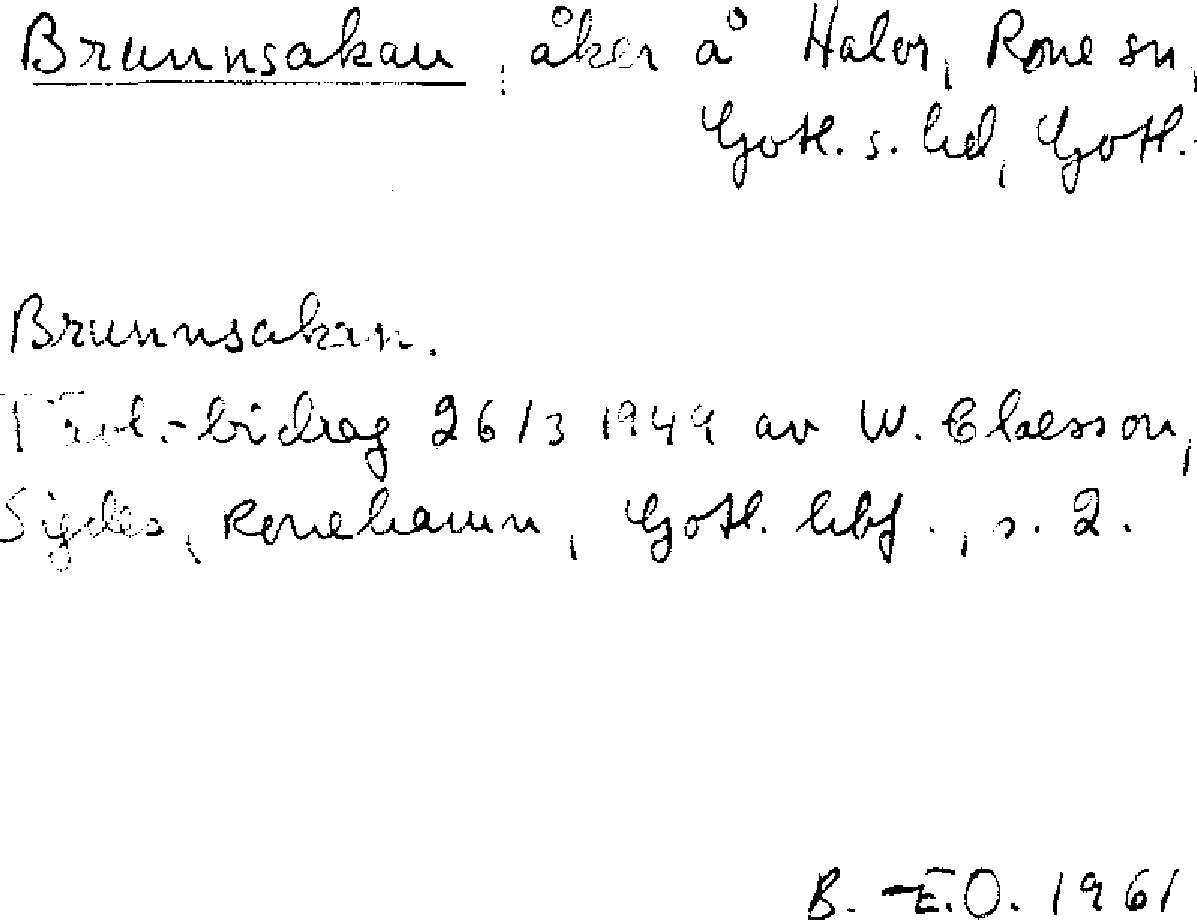 Brunnsakan, åker å Halor, Rone sn,
Gotl. s. hd, Gotl.
Brunnsakan.
Tävl.-bidrag 26/3 1949 av W. Claesson,
Sigdes, Ronehamn, Gotl. hbf., s. 2.
B.-E.O. 1961